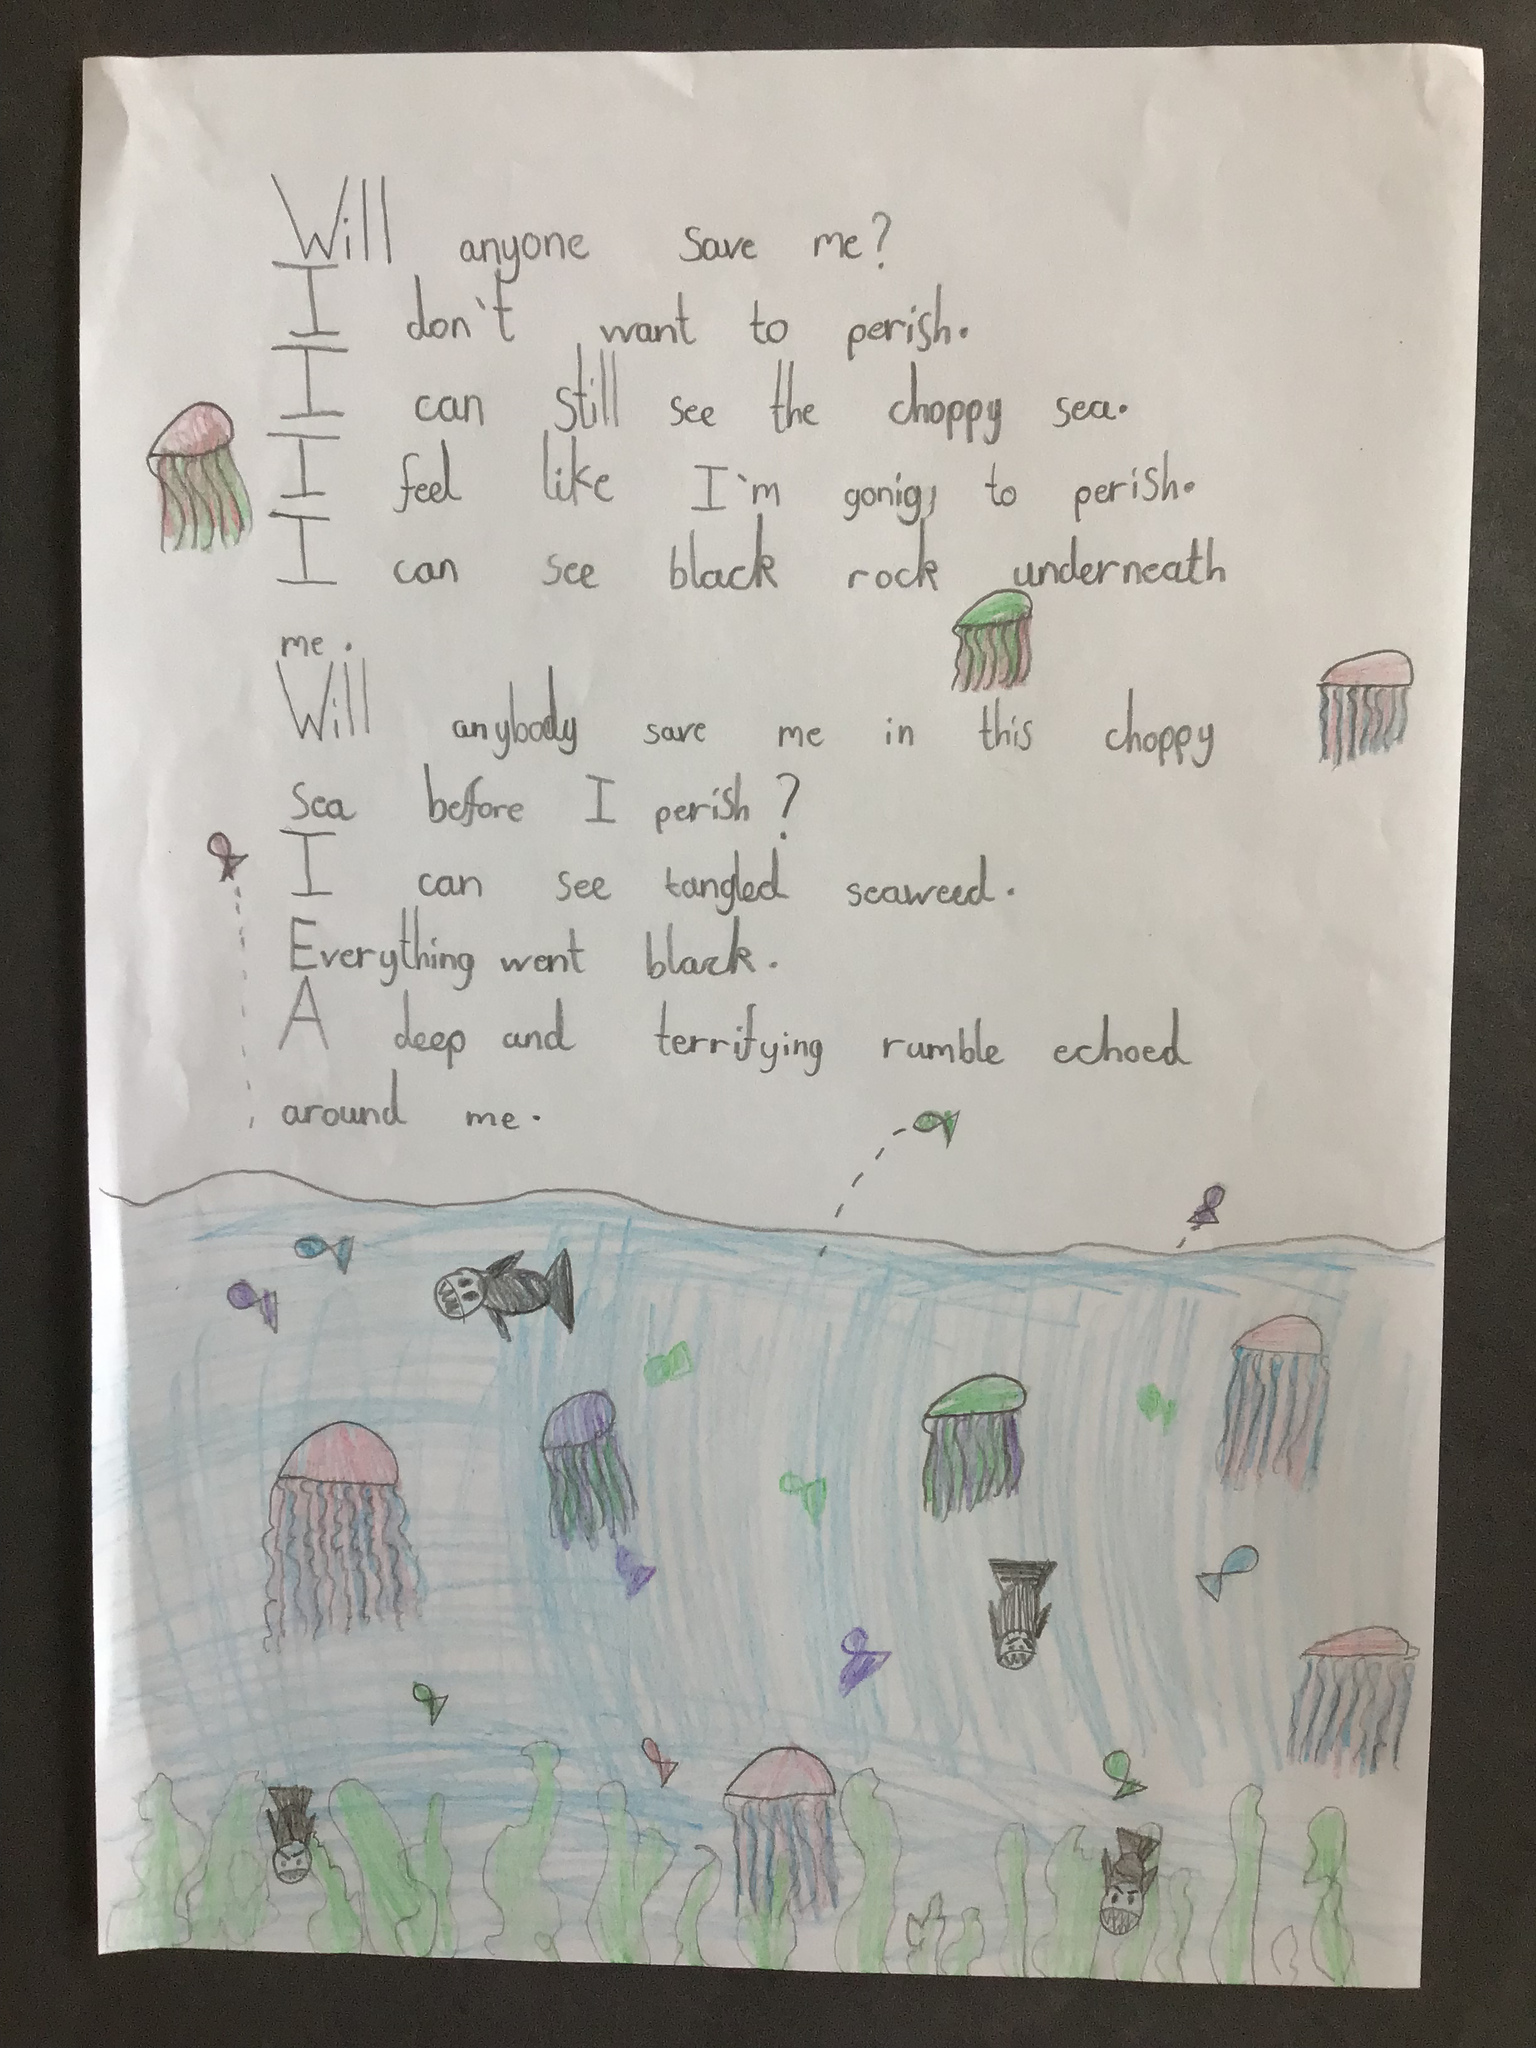 Will anyone save me?
I don't want to perish.
I can still see the choppy sea.
I feel like I'm gonig, to perish.
I can see black rock underneath
me.
Will anybody save me in this choppy
sea before I perish?
I can see tangled seaweed.
Everything went black.
A deep and terrifying rumble echoed
around me.